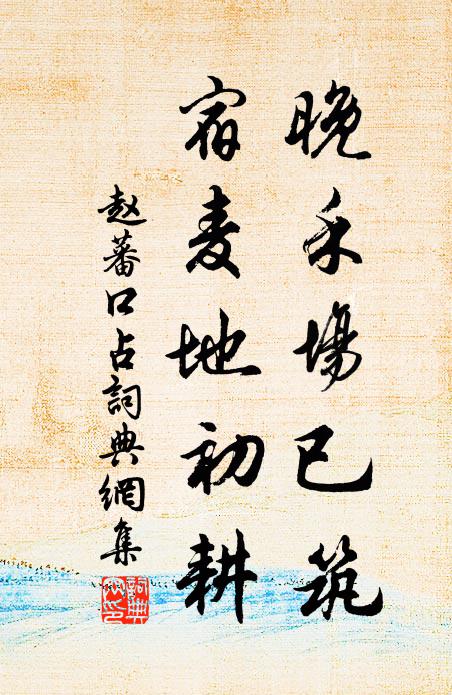 晚禾場已筑
宿麦地初耕
赵蕃口占詞典網集